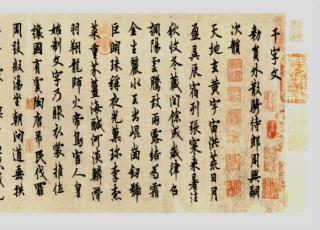 千字文
勑員外散騎侍郎周興嗣
次韻
天地玄黃宇宙洪荒日月
盈昃辰宿列張寒來暑往
秋收冬藏閏餘成歲律召
調陽雲騰致雨露結為霜
金生麗水玉出崐崗劒號
巨闕珠稱夜光菓珎李柰
菜重芥薑海鹹河淡鱗潛
羽翔龍師火帝鳥官人皇
始制文字乃服衣裳推位
讓國有虞陶唐吊民伐罪
周發殷湯坐朝問道垂拱